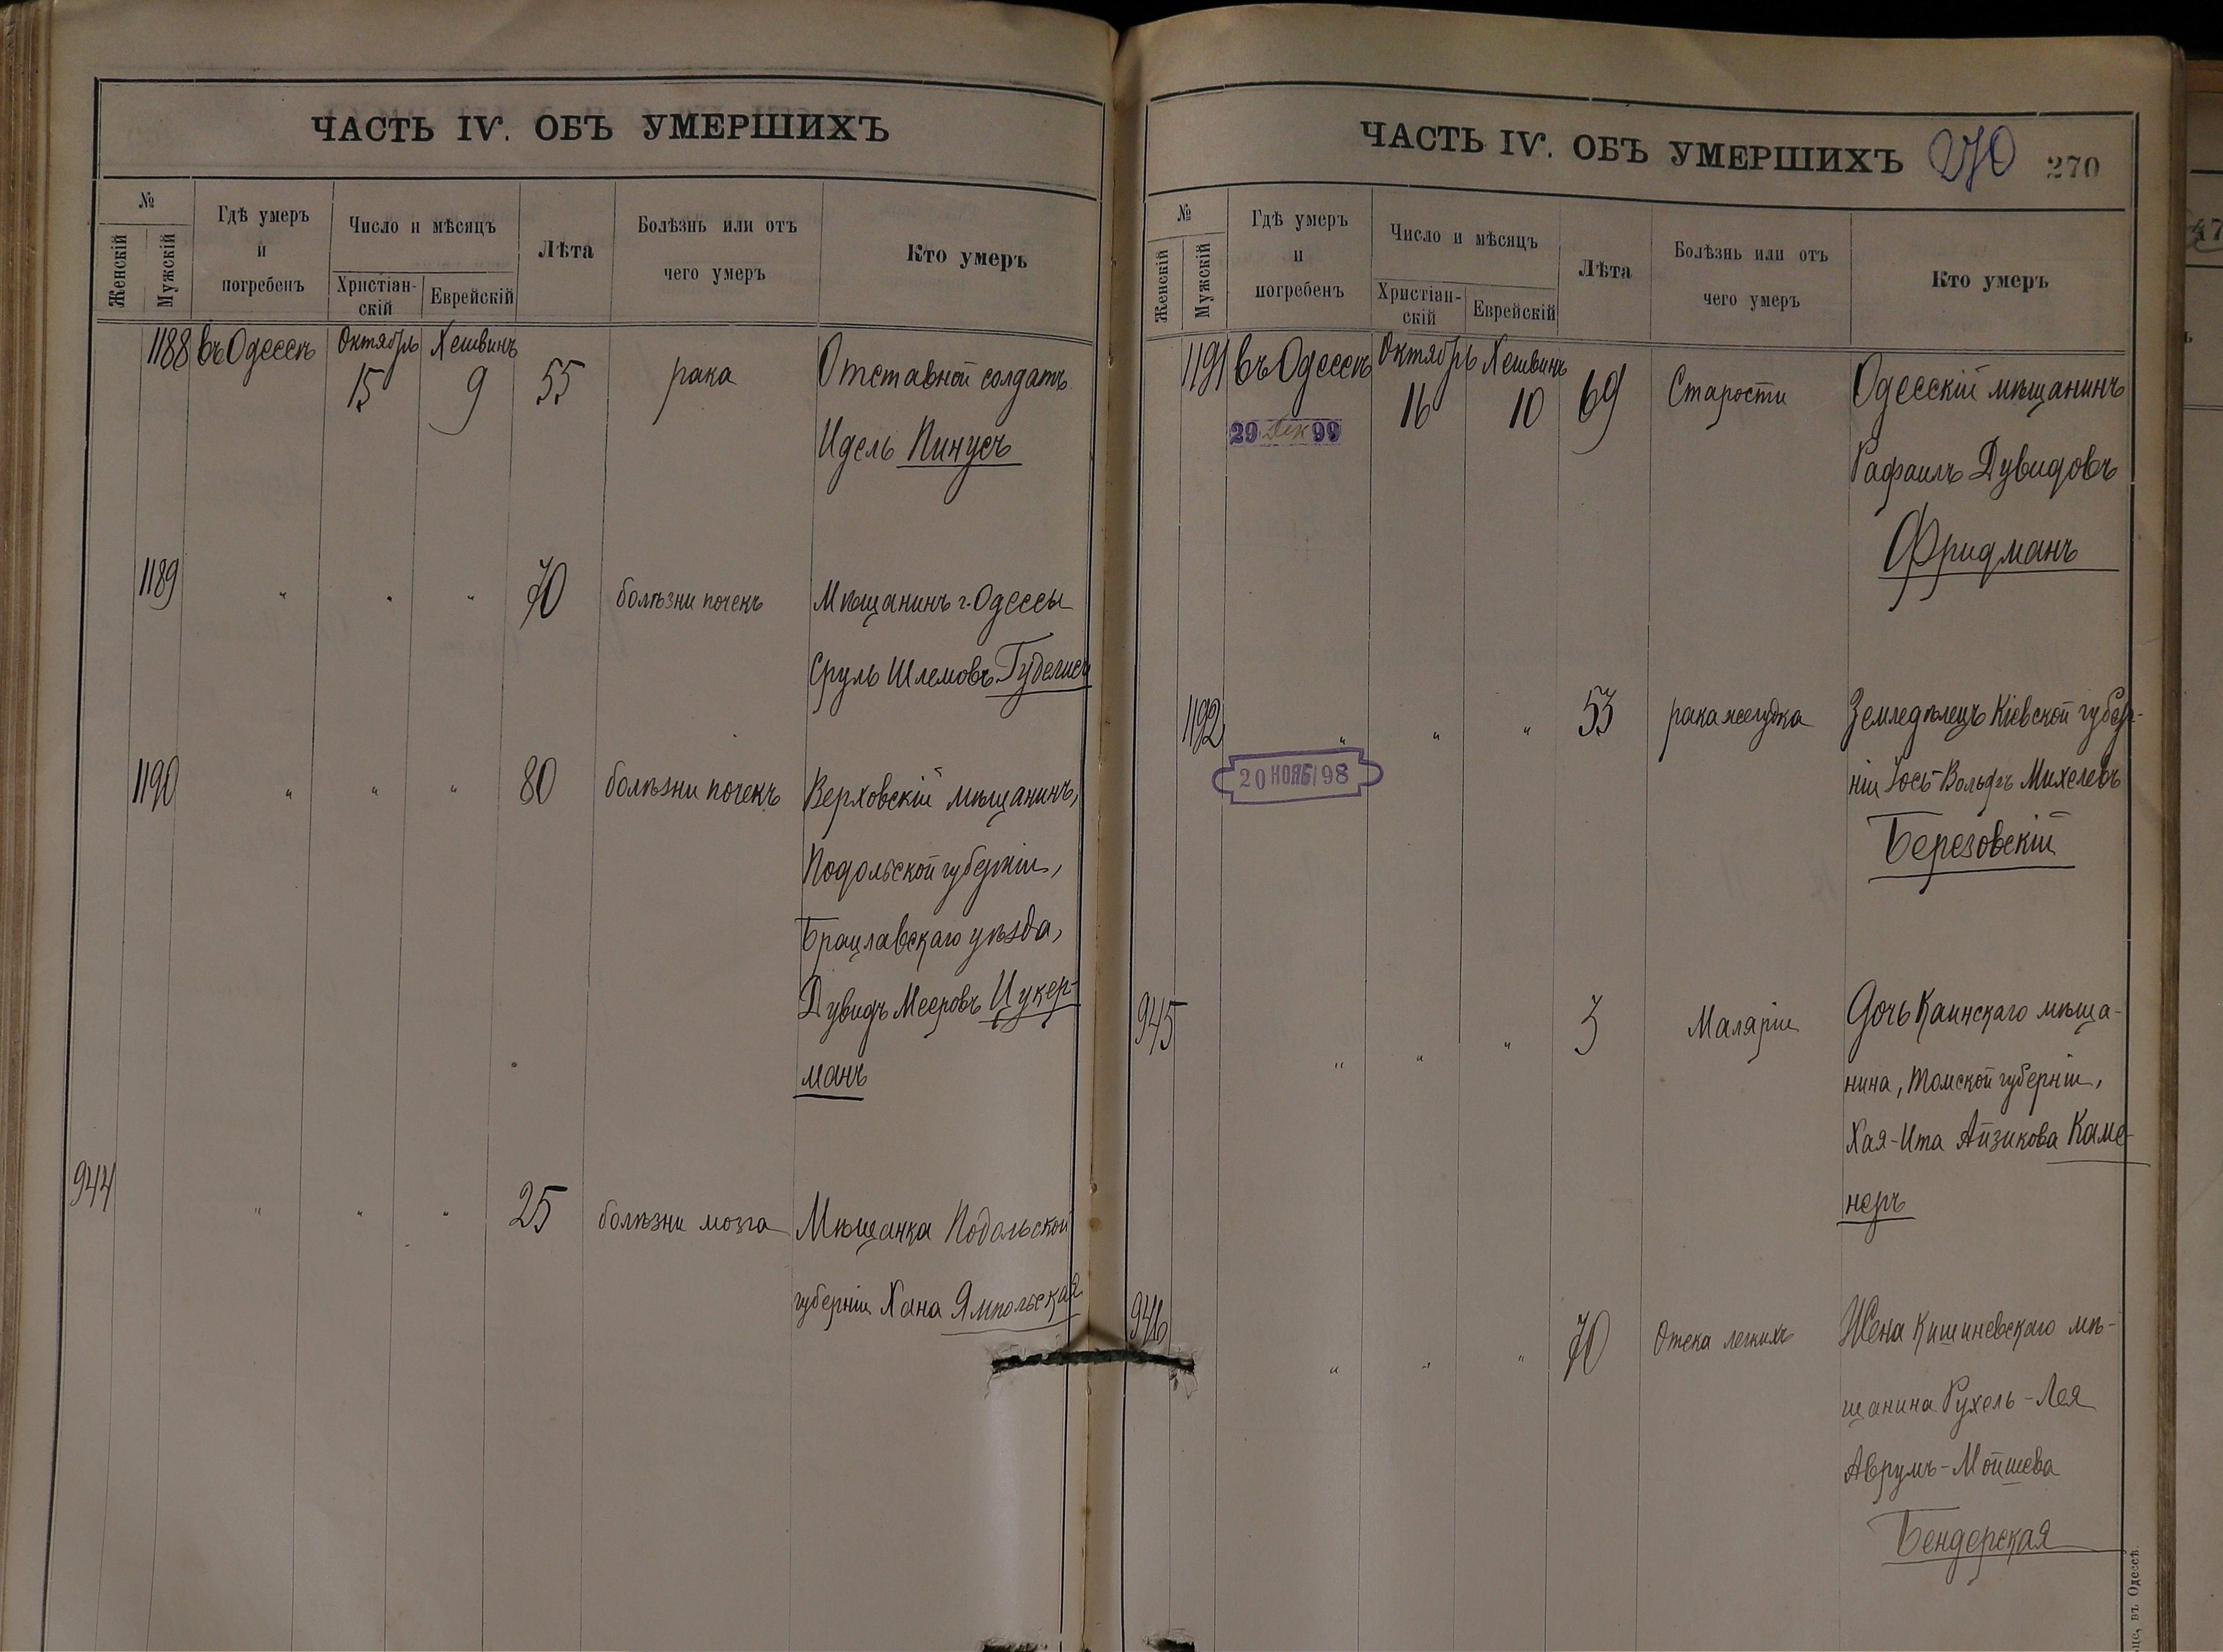 ЧАСТЬ IV. ОБЪ УМЕРШИХЪ
№
Женскій
Мужскій
Гдѣ умеръ
и
погребенъ
Число и мѣсяцъ
Христіан-
скій
Еврейскій
Лѣта
Болѣзнь или отъ
чего умеръ
Кто умеръ
1188 въ Одессѣ Октябрь Хешвинъ
15 9 55 рака Отставной солдатъ
Идель Пинусъ
1189 " " " 70 болѣзни почекъ Мѣщанинъ г. Одессы
Сруль Шлемовъ
1190 " " " 80 болѣзни почекъ Верховскій мѣщанинъ,
Подольской губерніи,
Брацлавскаго уѣзда,
Дувидъ Мееровъ Цукер-
манъ
944 " " " 25 болѣзни мозга Мѣщанка Подольской
губерніи Хана Ямпольская
ЧАСТЬ IV. ОБЪ УМЕРШИХЪ 270 270
№
Женскій
Мужскій
Гдѣ умеръ
и
погребенъ
Число и мѣсяцъ
Христіан-
скій
Еврейскій
Лѣта
Болѣзнь или отъ
чего умеръ
Кто умеръ
1191 въ Одессѣ Октябрь Хешвинъ
16 10 69 Старости Одесскій мѣщанинъ
29 Дек 99
Рафаилъ Дувидовъ
Фридманъ
1192 " " " 53 рака желудка Земледѣлецъ Кіевской губер-
20 НОЯБ 98
ніи Іось-Вольфъ Михелевъ
Березовскій
945 " " " 3 Маляріи Дочь Каинскаго мѣща-
нина, Томской губерніи,
Хая-Ита Айзикова Каме-
неръ
946 " " " 70 Отека легкихъ Жена Кишиневскаго мѣ-
щанина Рухель-Лея
Аврумъ-Мойшева
Бендерская
въ Одессѣ.
47